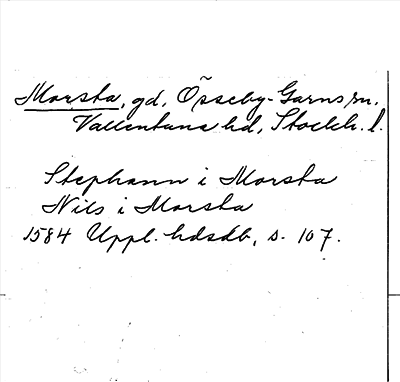 Morsta, gd, Össeby-Garns sn,
Vallentuna hd, Stockh. l.
Stephann i Morsta
Nils i Morsta
1584 Uppl. hdsdb, s. 107.